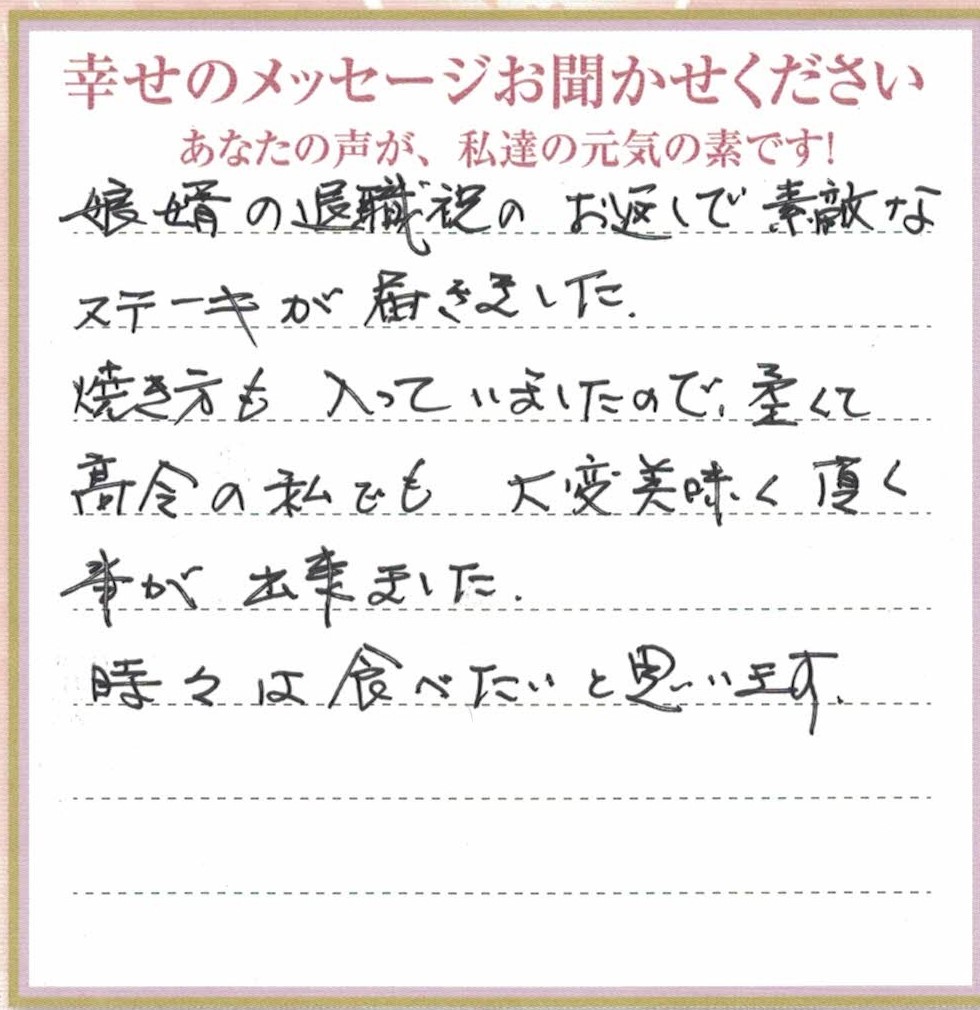 幸せのメッセージお聞かせください
あなたの声が、私達の元気の素です!
娘婿の退職祝の お返しで 素敵な
ステーキが 届きました.
焼き方も 入っていましたので、柔くて
高令の私でも 大変美味く頂く
事が 出来ました.
時々は食べたいと思います.